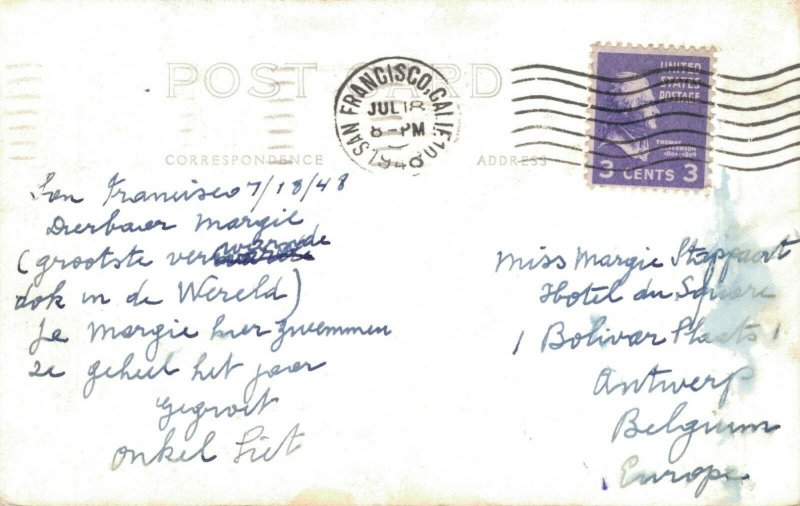 POST CARD
CORRESPONDENCE
ADDRESS
SAN FRANCISCO, CALIF.
JUL 18
8-PM
1948
UNITED
STATES
POSTAGE
THOMAS
JEFFERSON
1801-1809
3 CENTS 3
San Francisco 7/18/48
Dierbaer Margie
(grootste verwarmde
dok in de Wereld)
Ja Margie hier zwemmen
ze geheel het jaar
gegroet
onkel
Miss Margie Stappaert
Hotel du Square
1 Bolivar Plaats 1
Antwerp
Belgium
Europe